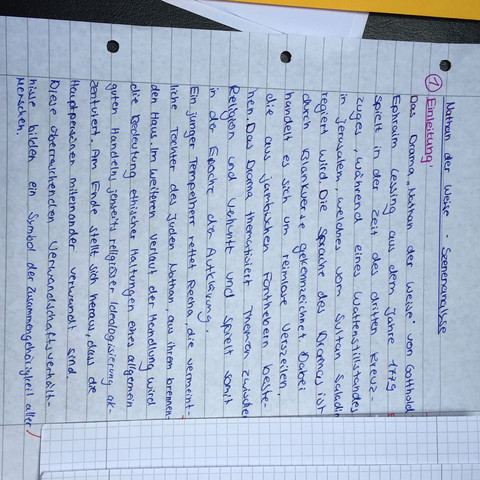 Nathan der Weise - Szenenanalyse
① Einleitung
Das Drama „Nathan der Weise" von Gotthold
Ephraim Lessing aus dem Jahre 1779
spielt in der Zeit des dritten Kreuz
zuges, während eines Waffenstillstandes
in Jerusalem, welches vom Sultan Saladin
regiert wird. Die Sprache des Dramas ist
durch Blankverse gekennzeichnet. Dabei
handelt es sich um reimlose Verszeilen,
die aus jambischen Fünfhebern beste-
hen. Das Drama thematisiert Themen zwischen
Religion und Vernunft und spielt somit
in der Epoche der Aufklärung.
Ein junger Tempelherr rettet Recha, die vermeint-
liche Tochter des Juden Nathan, aus ihrem brennen-
den Haus. Im weiteren Verlauf der Handlung wird
die Bedeutung ethischer Haltungen eines allgemein
guten Handeln, jenseits religiöser Ideologisierung ak-
zentuiert. Am Ende stellt sich heraus, dass die
Hauptpersonen miteinander verwandt sind.
Diese überraschenden Verwandschaftsverhält-
nisse bilden ein Symbol der Zusammengehörigkeit aller
Menschen.